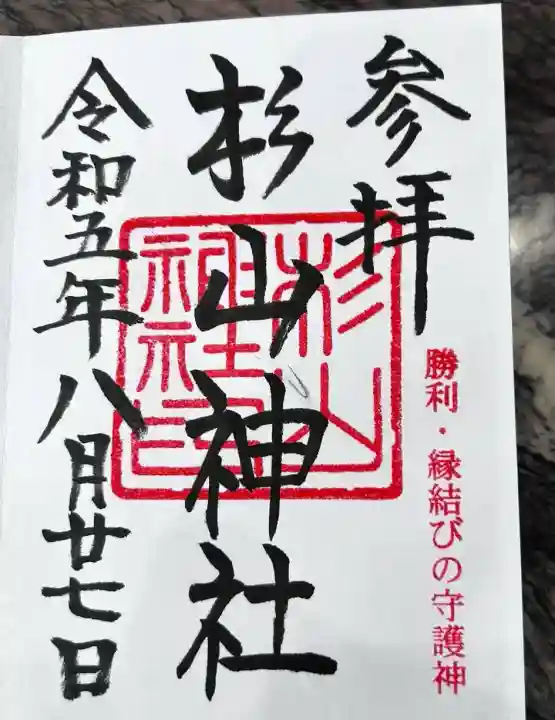 参拝
勝利・縁結びの守護神
杉山神社
杉山神社印
令和五年八月廿七日